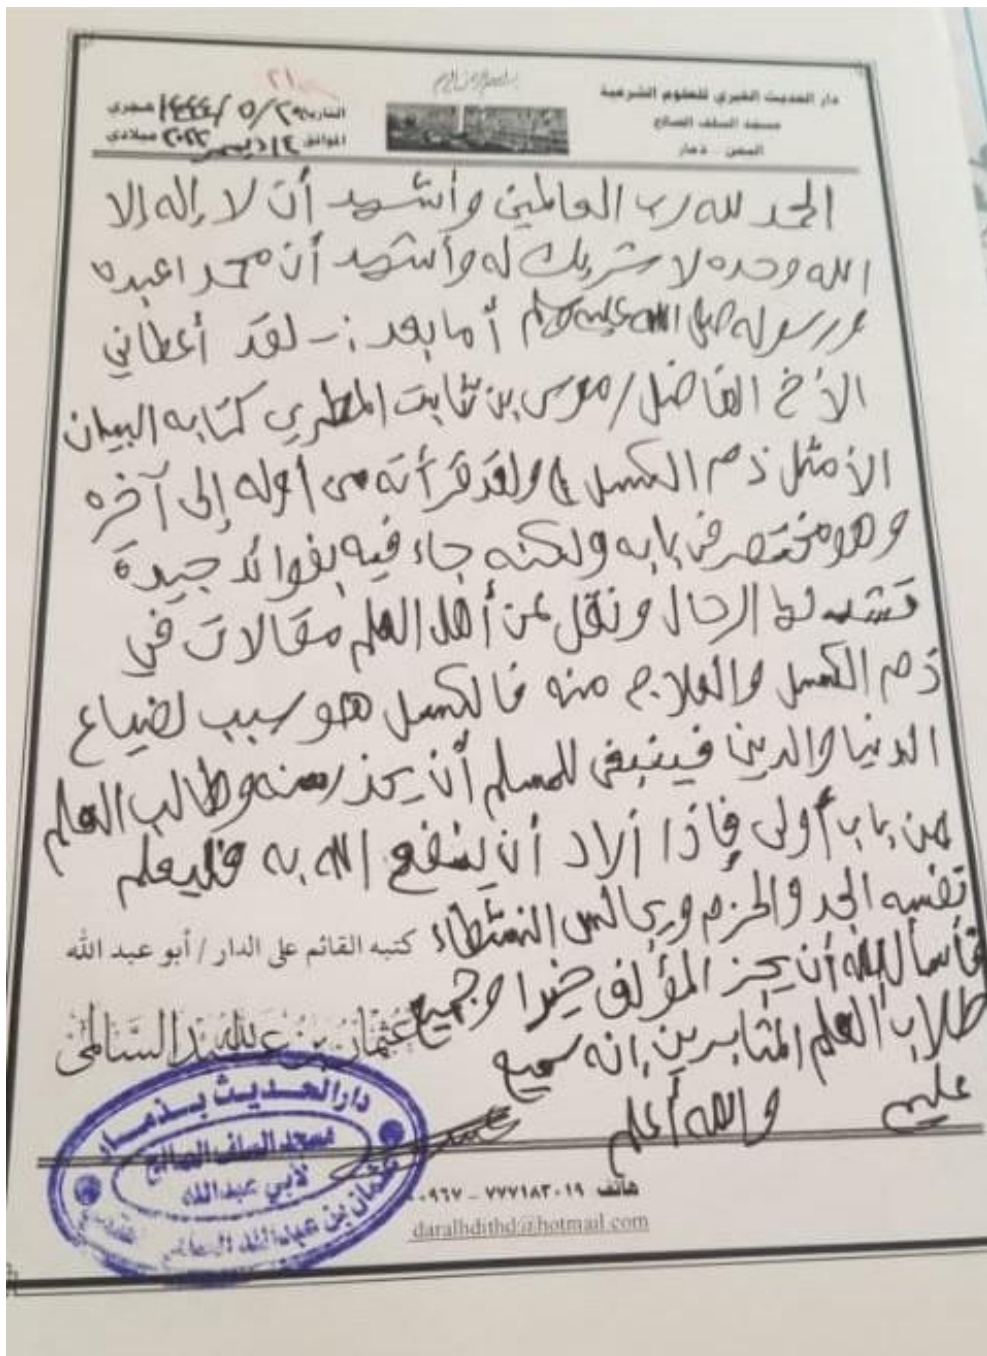 بسم الله الرحمن الرحيم
دار الحديث الخيري للعلوم الشرعية
مسجد السلف الصالح
اليمن - ذمار
التاريخ ٢٠ / ٥ / ١٤٤٤ هجري
الموافق ديسمبر ٢٠٢٢ ميلادي
الحمد لله رب العالمين وأشهد أن لا إله إلا
الله وحده لا شريك له وأشهد أن محمدا عبده
ورسوله صلى الله عليه وسلم أما بعد :- لقد أعطاني
الأخ الفاضل / موسى بن ثابت المطري كتابه البيان
الأمثل ذم الكسل ولقد قرأته من أوله إلى آخره
وهو مختصر في بابه ولكنه جاء فيه بفوائد جيدة
تشد لها الرحال ونقل عن أهل العلم مقالات في
ذم الكسل والعلاج منه فالكسل هو سبب لضياع
الدنيا والدين فينبغي للمسلم أن يحذر منه وطالب العلم
من باب أولى فإذا أراد أن ينفع الله به فليعلم
نفسه الجد والحزم ويجالس النشطاء
فأسأل الله أن يجز المؤلف خيرا وجميع
طلاب العلم المثابرين إنه سميع
عليم والله أعلم
كتبه القائم على الدار / أبو عبد الله
عثمان بن عبدالله السالمي
دار الحديث بذمار
مسجد السلف الصالح
لأبي عبدالله
عثمان بن عبدالله السالمي
هاتف ٧٧٧١٨٣٠١٩ - ٠٠٩٦٧
daralhdithd@hotmail.com